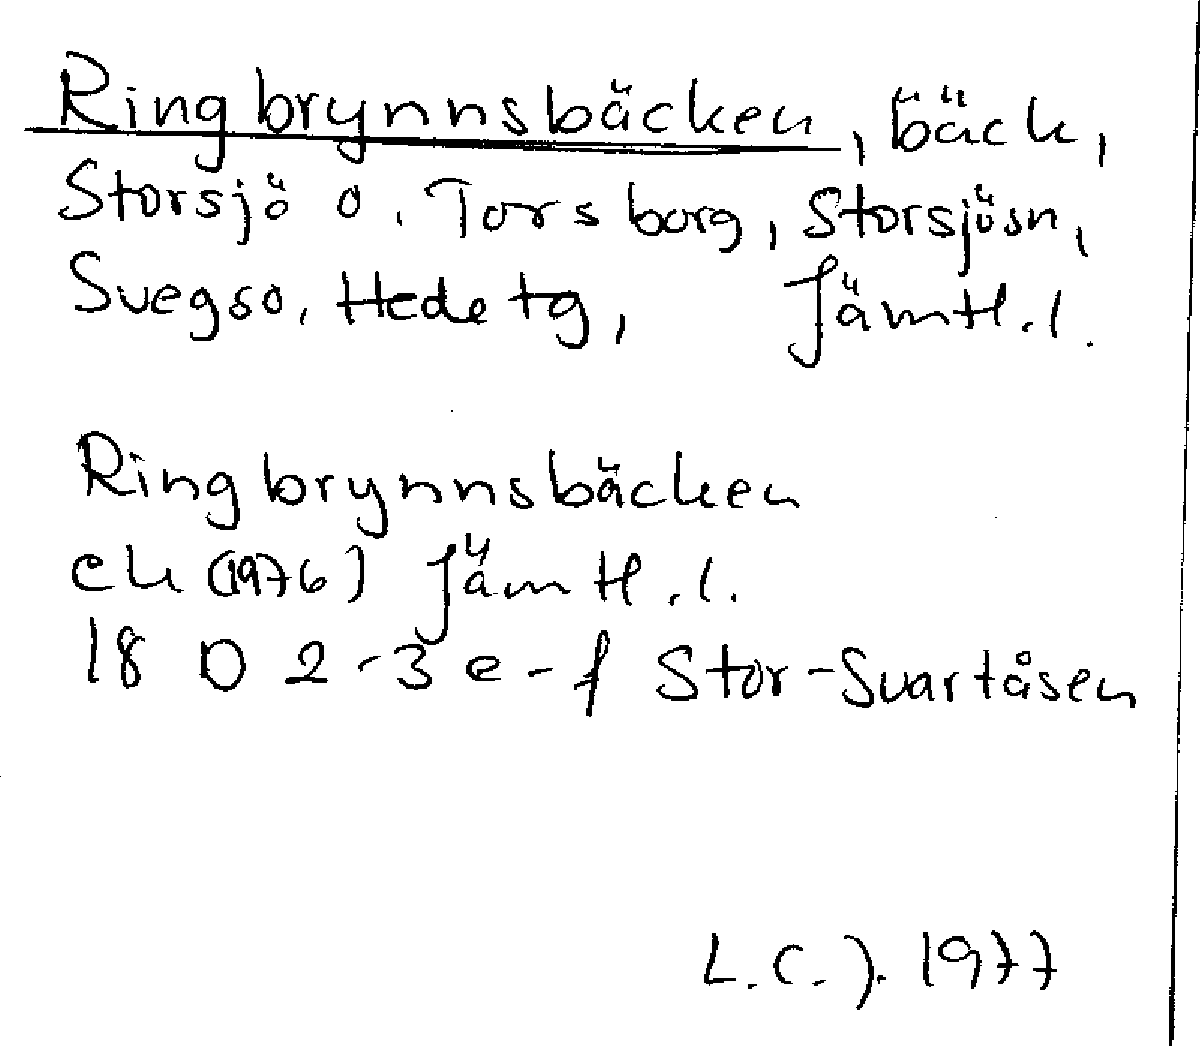 Ringbrynnsbäcken, bäck,
Storsjö o. Torsborg, Storsjösn,
Svegso, Hede tg, Jämtl.l.
Ringbrynnsbäcken
ek (1976) Jämtl.l.
18 D 2-3 e-f Stor-Svartåsen
L.C.J. 1977